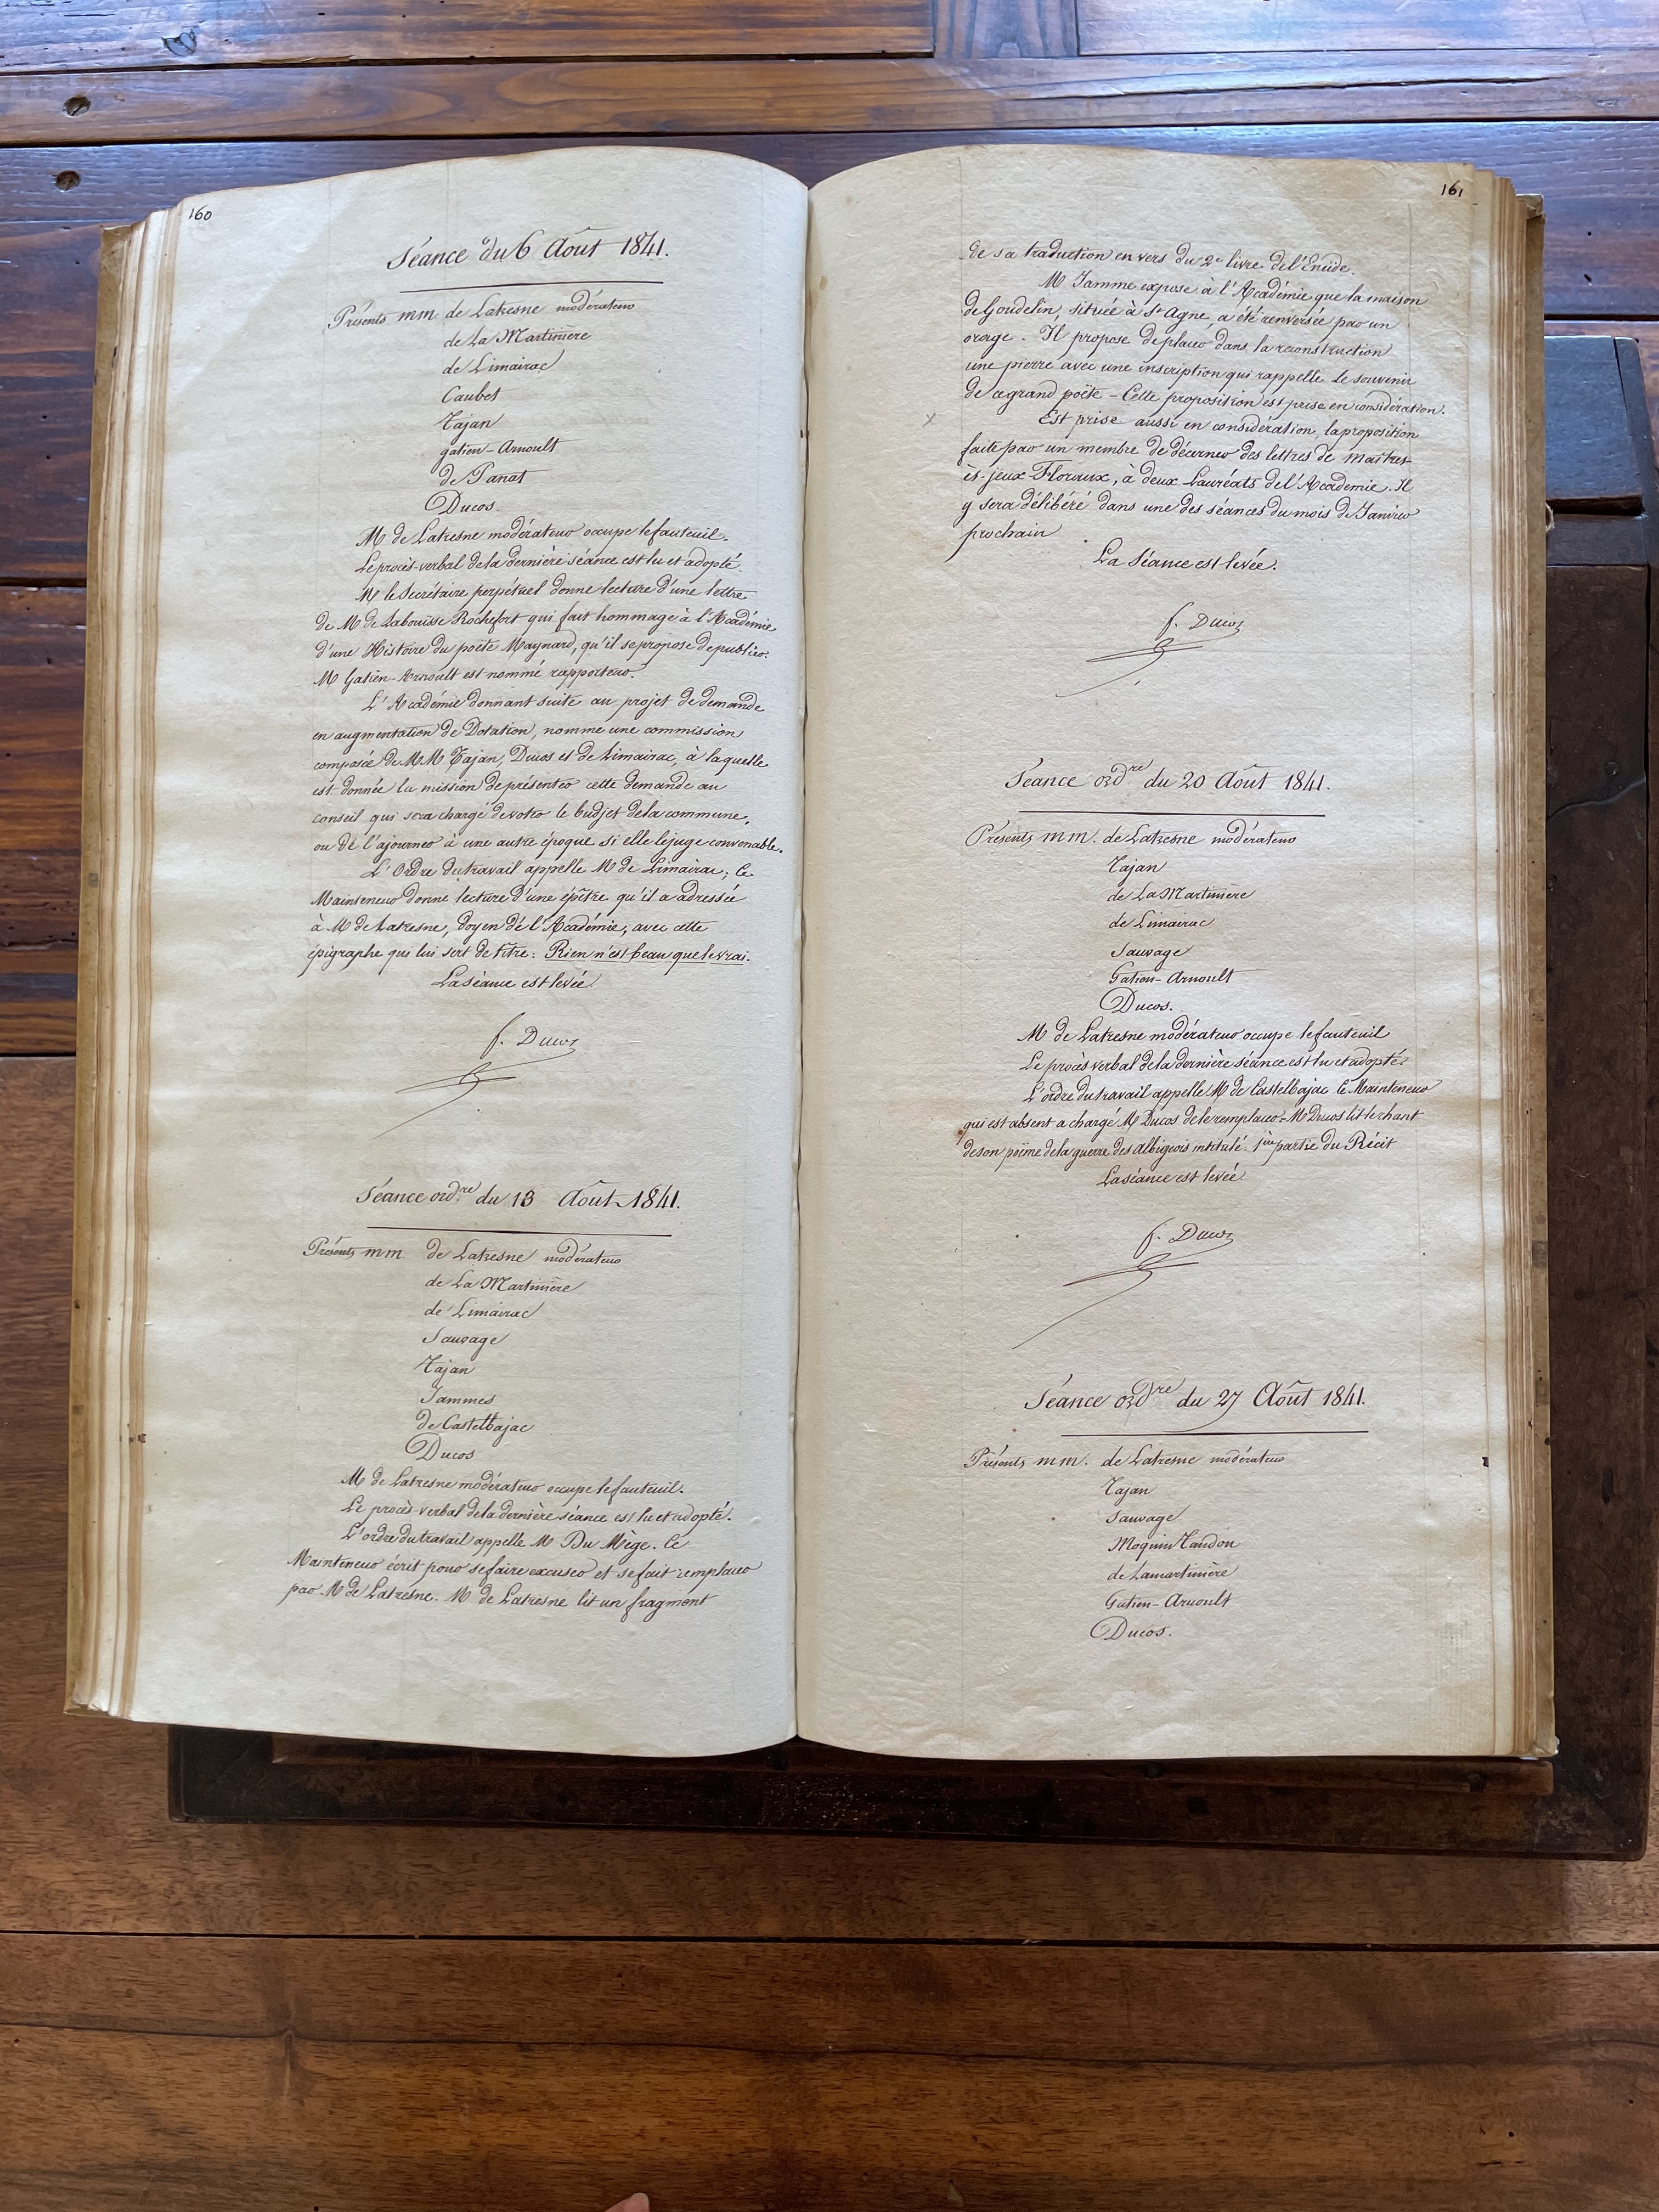 160
Séance du 6 Août 1841.
Présents mm. de Latresne modérateur
de La Martinière
de Limairac
Caubet
Tajan
gatien-Arnoult
de Panat
Ducos.
M de Latresne modérateur occupe le fauteuil.
Le procès-verbal de la dernière séance est lu et adopté.
M le Secrétaire perpétuel donne lecture d'une lettre
de M de Labouisse Rochefort qui fait hommage à l'Académie
d'une Histoire du poète Maynard, qu'il se propose de publier.
M Gatien-Arnoult est nommé rapporteur.
L'Académie donnant suite au projet de demande
en augmentation de Dotation, nomme une commission
composée de MM Tajan, Ducos et de Limairac, à laquelle
est donnée la mission de présenter cette demande au
conseil qui sera chargé de voter le budjet de la commune,
ou de l'ajourner à une autre époque si elle le juge convenable.
L'Ordre du travail appelle M de Limairac; Ce
Mainteneur donne lecture d'une épître qu'il a adressée
à M de Latresne, doyen de l'Académie, avec cette
épigraphe qui lui sert de titre: Rien n'est beau que le vrai.
La séance est levée.
f. Ducos
Séance ord.re du 13 Août 1841.
Présents mm. de Latresne modérateur
de La Martinière
de Limairac
Sauvage
Tajan
Jammes
de Castelbajac
Ducos
M de Latresne modérateur occupe le fauteuil.
Le procès-verbal de la dernière séance est lu et adopté.
L'ordre du travail appelle M Du Mège. Ce
Mainteneur écrit pour se faire excuser et se fait remplacer
par M de Latresne. M de Latresne lit un fragment
161
de sa traduction en vers du 2e livre de l'Enéide.
M Jamme expose à l'Académie que la maison
de Goudelin, située à St Agne, a été renversée par un
orage. Il propose de placer dans la reconstruction
une pierre avec une inscription qui rappelle le souvenir
de ce grand poëte - Cette proposition est prise en considération.
x Est prise aussi en considération, la proposition
faite par un membre de décerner des lettres de maîtres-
ès-jeux-Floraux, à deux Lauréats de l'Académie. Il
y sera délibéré dans une des séances du mois de Janvier
prochain
La Séance est levée.
f. Ducos
Séance ord.re du 20 Août 1841.
Présents mm. de Latresne modérateur
Tajan
de La Martinière
de Limairac
Sauvage
Gatien-Arnoult
Ducos.
M de Latresne modérateur occupe le fauteuil
Le procès verbal de la dernière séance est lu et adopté.
L'ordre du travail appelle M de Castelbajac Ce Mainteneur
qui est absent a chargé M Ducos de le remplacer. M Ducos lit le chant
de son poëme de la guerre des albigeois intitulé: 1ère partie du Récit
La séance est levée.
f. Ducos
Séance ord.re du 27 Août 1841.
Présents mm. de Latresne modérateur
Tajan
Sauvage
Moquin Tandon
de Lamartinière
Gatien-Arnoult
Ducos.